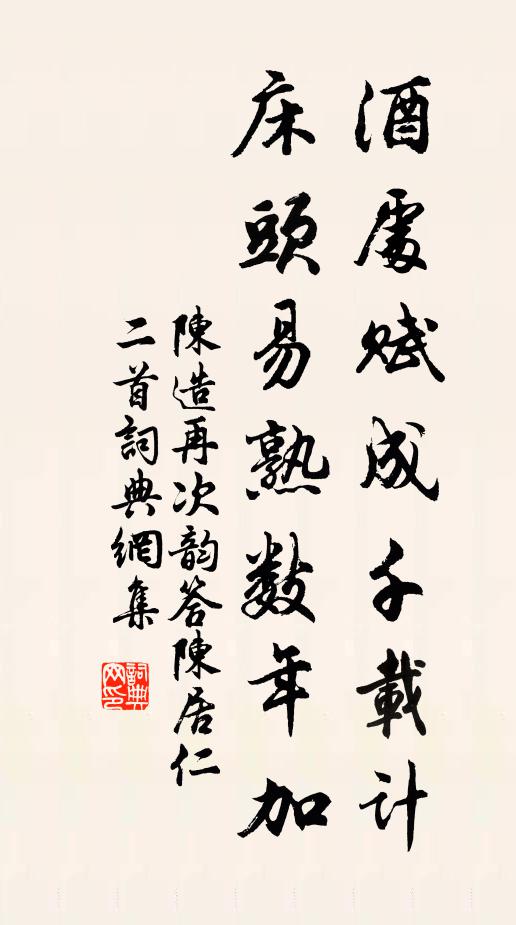 酒處賦成千載計
床頭易熟数年加
陳造再次韵答陳居仁
二首詞典網集
詞典网印